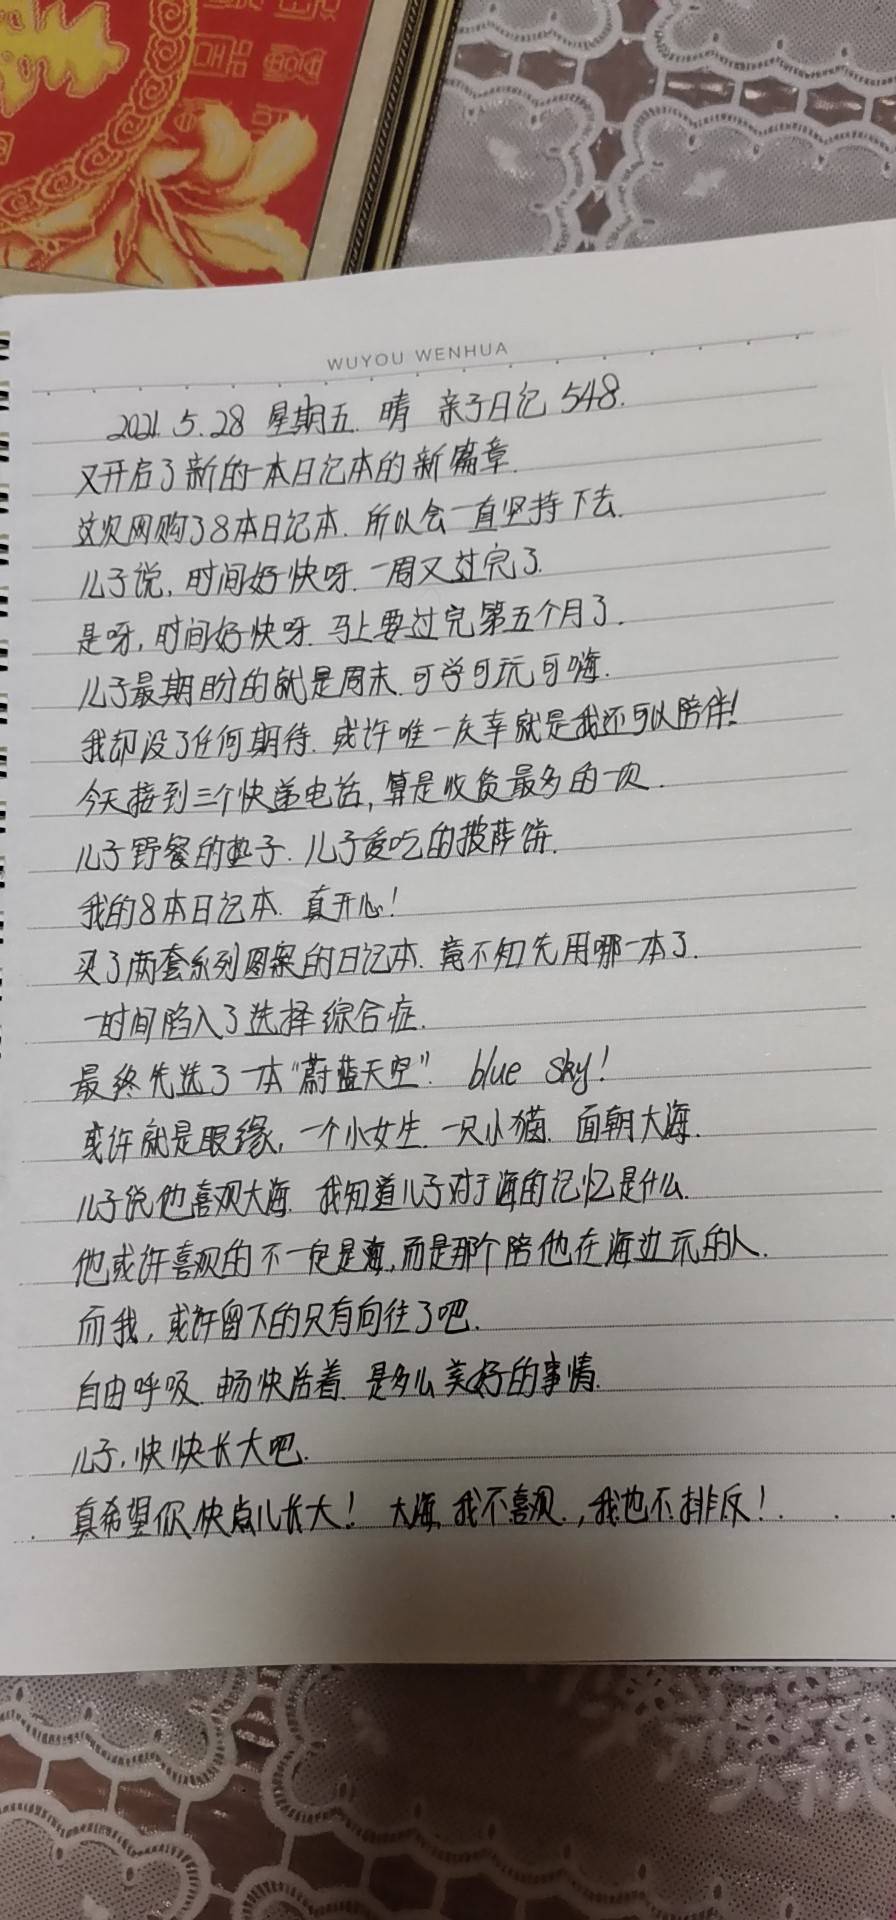 WUYOU WENHUA
2021.5.28 星期五. 晴 亲子日记 548.
又开启了新的一本日记本的新篇章.
这次网购了8本日记本. 所以会一直坚持下去.
儿子说, 时间好快呀. 一周又过完了.
是呀, 时间好快呀. 马上要过完第五个月了.
儿子最期盼的就是周末. 可学可玩可嗨.
我却没了任何期待. 或许唯一庆幸就是我还可以陪伴!
今天接到三个快递电话, 算是收货最多的一次.
儿子野餐的垫子. 儿子爱吃的披萨饼.
我的8本日记本. 真开心!
买了两套系列图案的日记本. 竟不知先用哪一本了.
一时间陷入了选择综合症.
最终先选了一本“蔚蓝天空”. blue sky!
或许就是眼缘, 一个小女生. 一只小猫. 面朝大海.
儿子说他喜欢大海. 我知道儿子对于海的记忆是什么.
他或许喜欢的不一定是海, 而是那个陪他在海边玩的人.
而我, 或许留下的只有向往了吧.
自由呼吸. 畅快活着. 是多么美好的事情.
儿子, 快快长大吧.
真希望你快点儿长大! 大海, 我不喜欢., 我也不排斥!